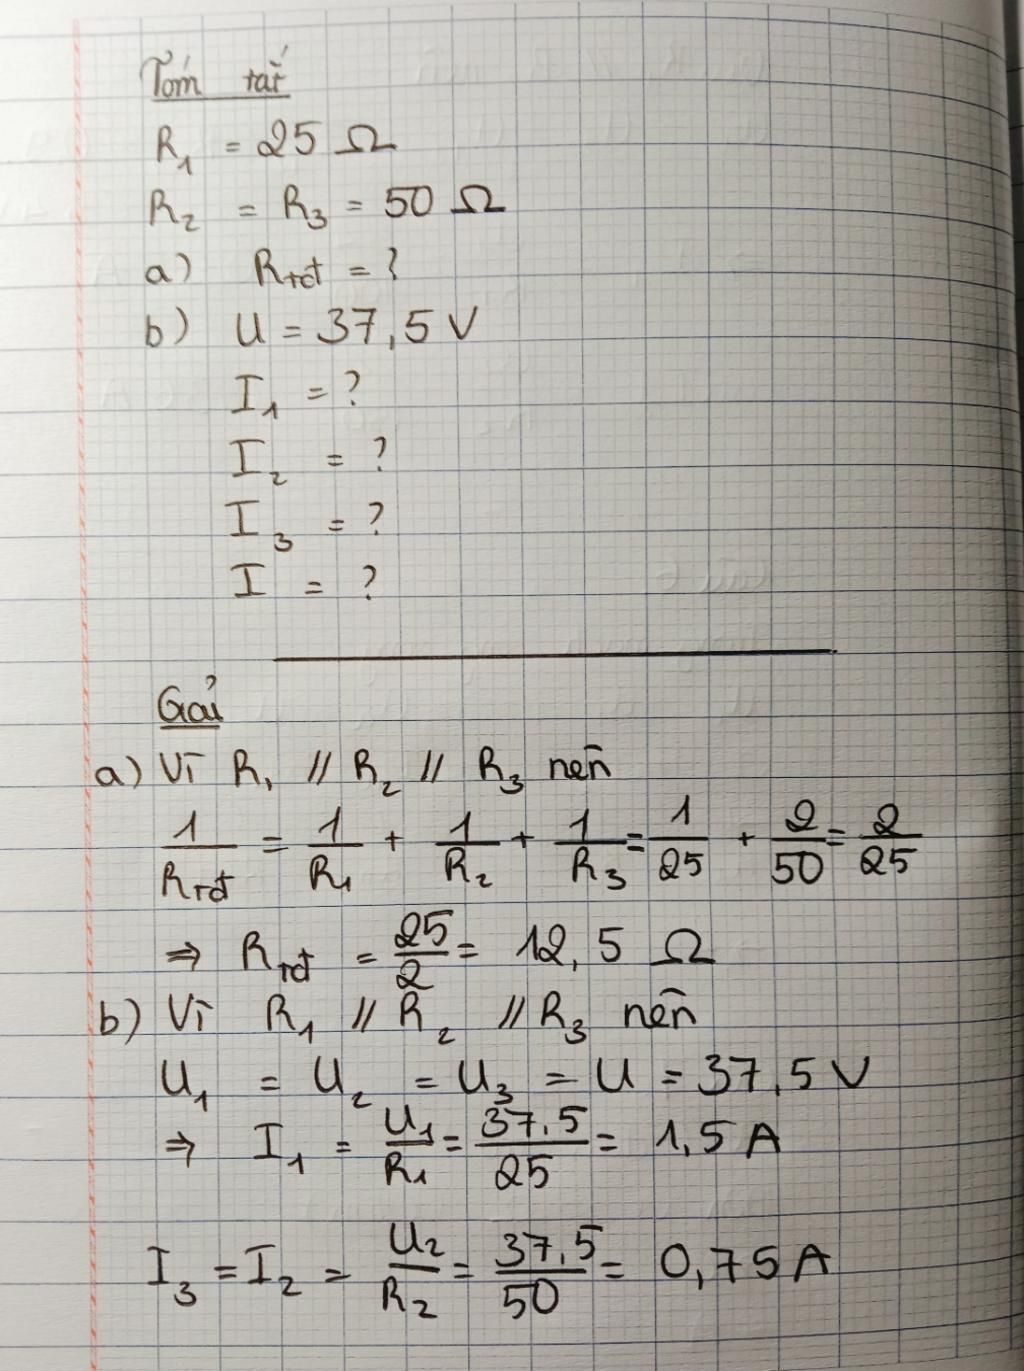 Tóm tắt
R₁ = 25 Ω
R₂ = R₃ = 50 Ω
a) Rtđ = ?
b) U = 37,5 V
I₁ = ?
I₂ = ?
I₃ = ?
I = ?
Giải
a) Vì R₁ // R₂ // R₃ nên
1/Rtđ = 1/R₁ + 1/R₂ + 1/R₃ = 1/25 + 2/50 = 2/25
⇒ Rtđ = 25/2 = 12,5 Ω
b) Vì R₁ // R₂ // R₃ nên
U₁ = U₂ = U₃ = U = 37,5 V
⇒ I₁ = U₁/R₁ = 37,5/25 = 1,5 A
I₃ = I₂ = U₂/R₂ = 37,5/50 = 0,75 A